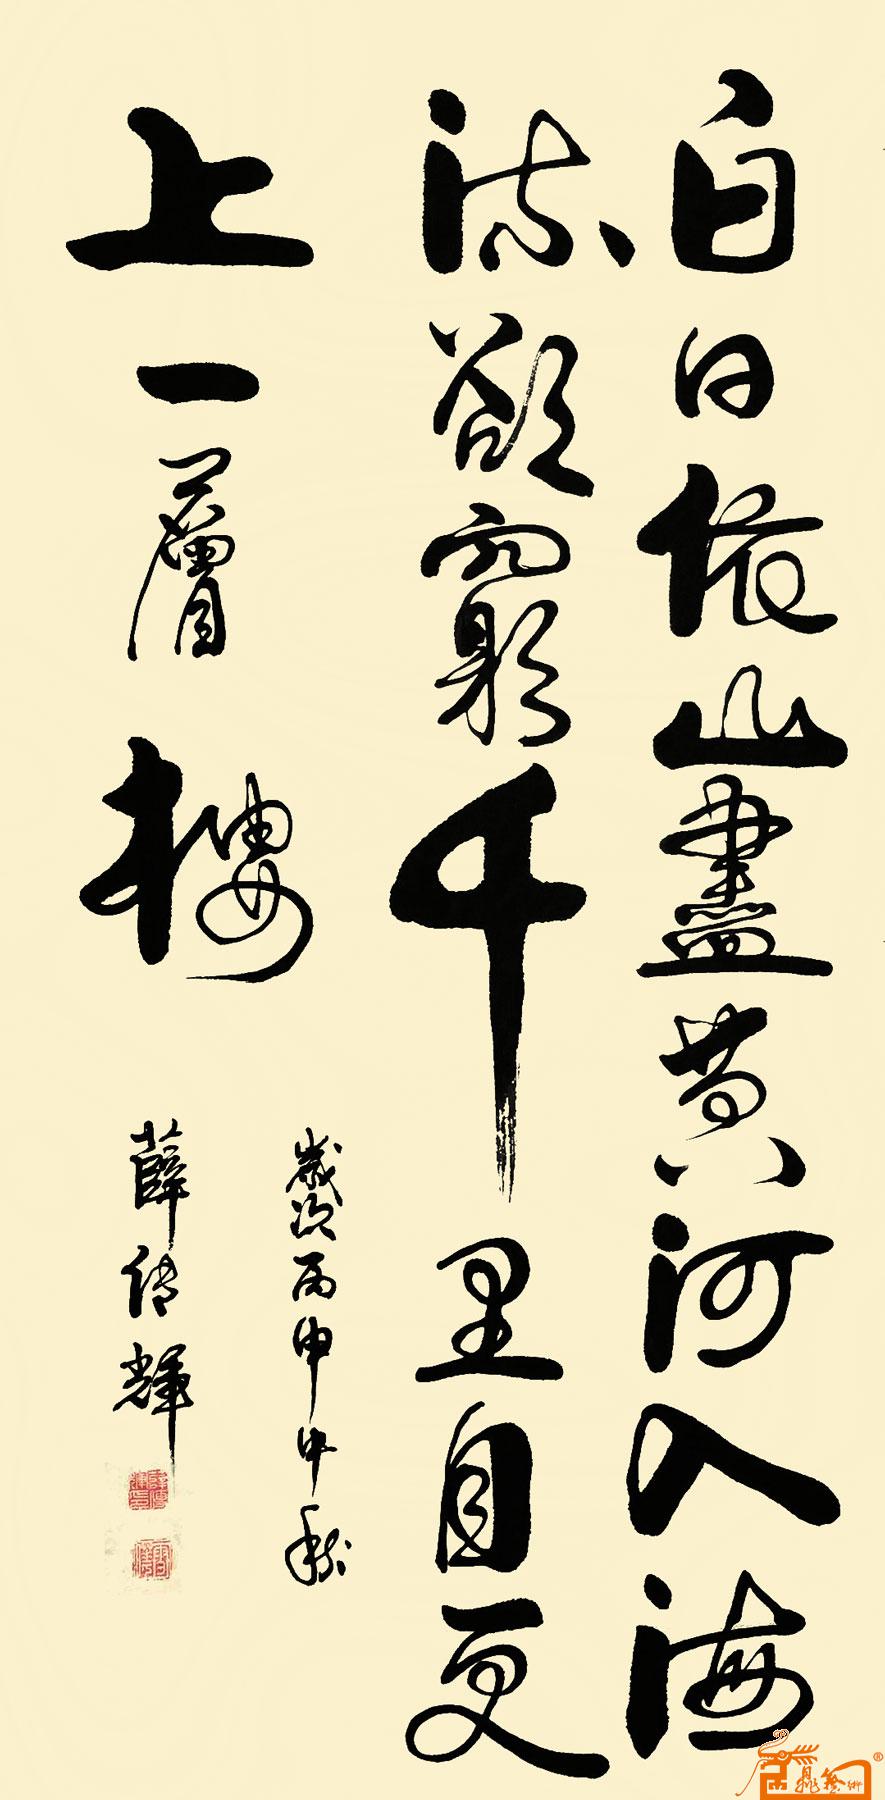 白日依山盡黃河入海
流欲窮千里目更
上一層樓
歲次丙申中秋
薛傳輝